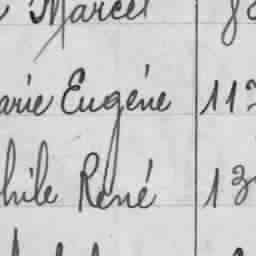 Marcel
arie Eugène 11
hile René 13